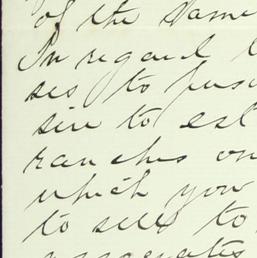 of the same
In regard t
ses to pur
sire to est
ranches on
which you
to sell to
associates